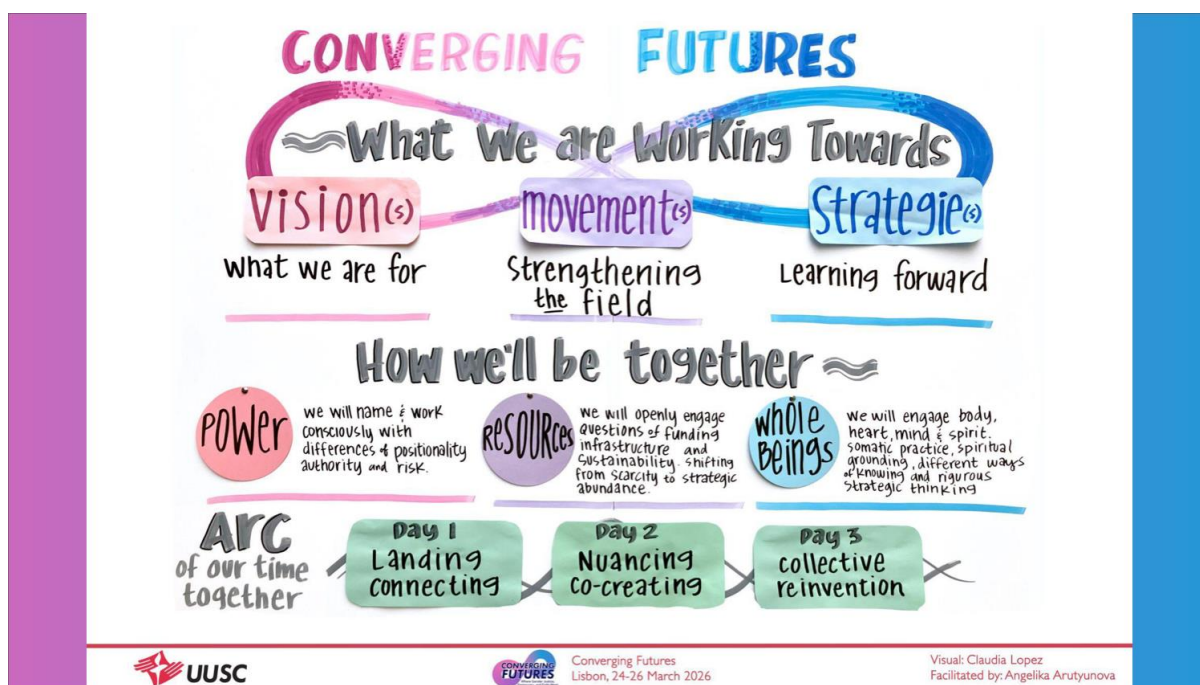 CONVERGING FUTURES
What We are Working Towards
Vision(s)
What we are for
movement(s)
Strengthening
the field
Strategie(s)
Learning forward
How we'll be together
POWER
we will name & work
consciously with
differences of positionality
authority and risk.
RESOURCES
we will openly engage
questions of funding
infrastructure and
sustainability. shifting
from scarcity to strategic
abundance.
Whole
Beings
we will engage body,
heart, mind & spirit.
somatic practice, spiritual
grounding, different ways
of knowing and rigurous
strategic thinking
ARC
of our time
together
Day 1
Landing
connecting
Day 2
Nuancing
co-creating
Day 3
collective
reinvention
UUSC
CONVERGING
FUTURES
Converging Futures
Lisbon, 24-26 March 2026
Visual: Claudia Lopez
Facilitated by: Angelika Arutyunova